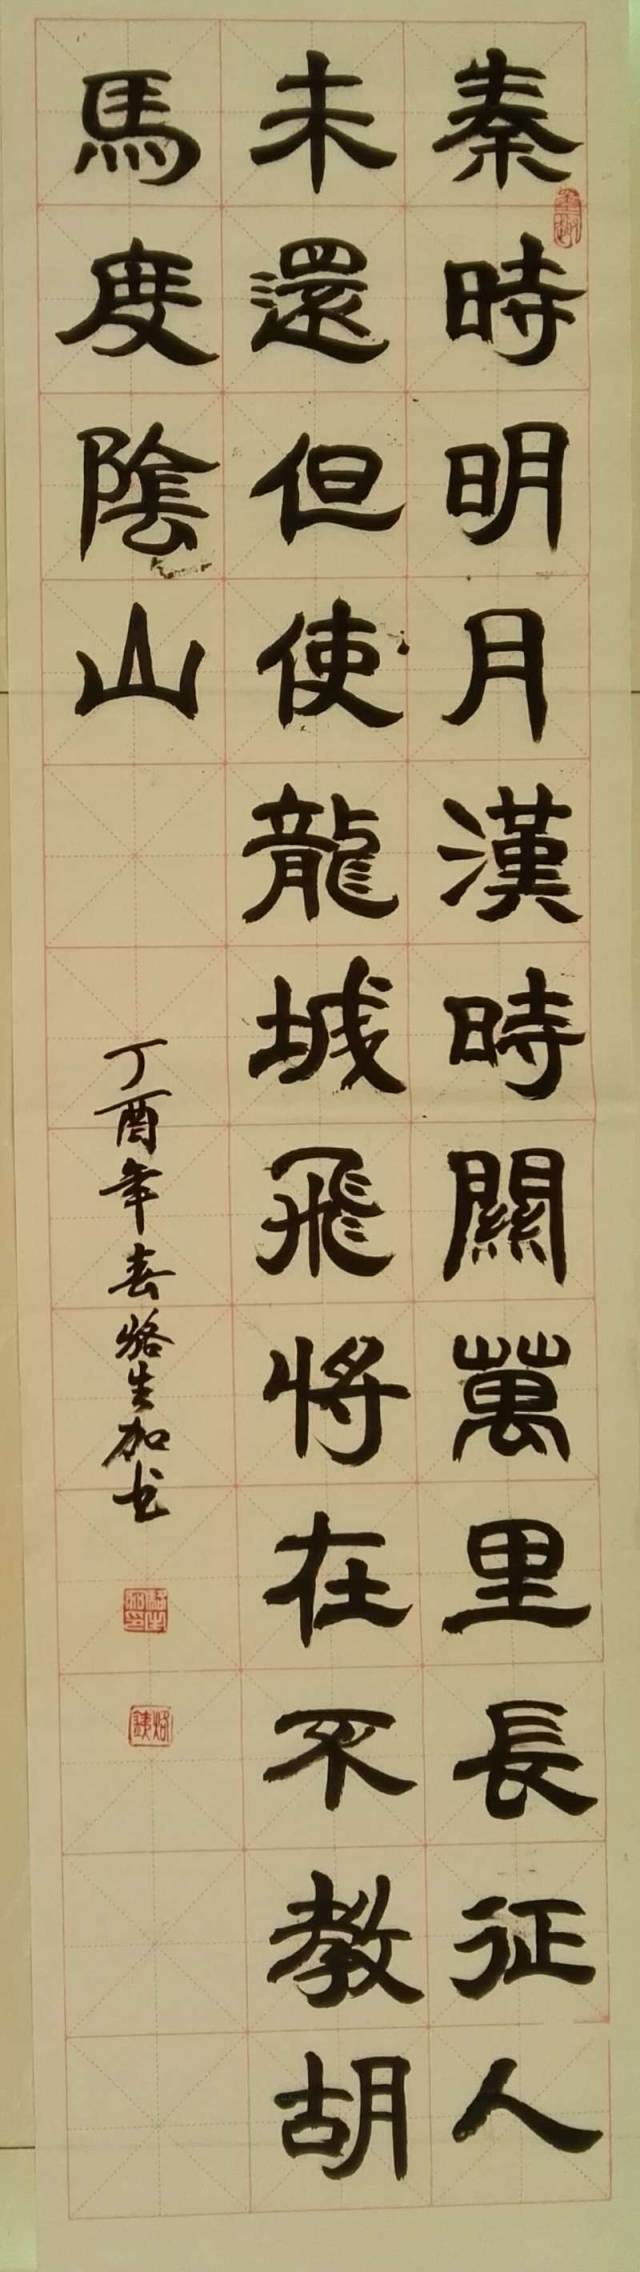 秦時明月漢時關萬里長征人
未還但使龍城飛將在不教胡
馬度陰山
丁酉年春烙生加书